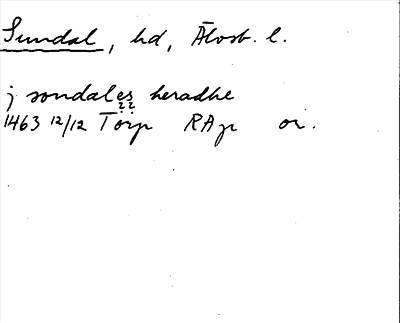 Sundal, hd, Älvsb. l.
j sondales heradhe
1463 12/12 Torp RAp or.